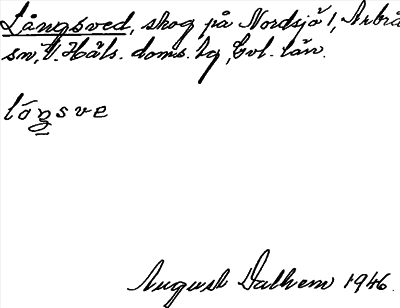 Långsved, skog på Nordsjö 1, Arbrå
sn, V. Häls. doms. lg, Gvl. län.
lóŋsve
August Dalhem 1946.